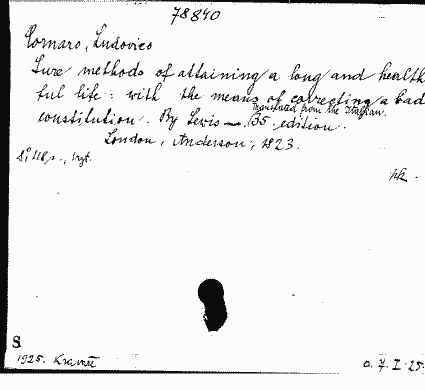 78840
Cornaro, Ludovico
Sure methods of attaining a long and health
ful life: with the means of correcting a bad
translated from the Italian.
constitution. By Lewis — 35. edition.
London, Anderson, 1823.
8°, 118 p.,
S
1925.